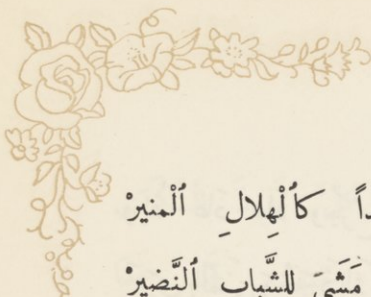 كٱلْهِلالِ ٱلْمنيرْ
مَشَىَ للشَّبابِ ٱلنَّضيرْ